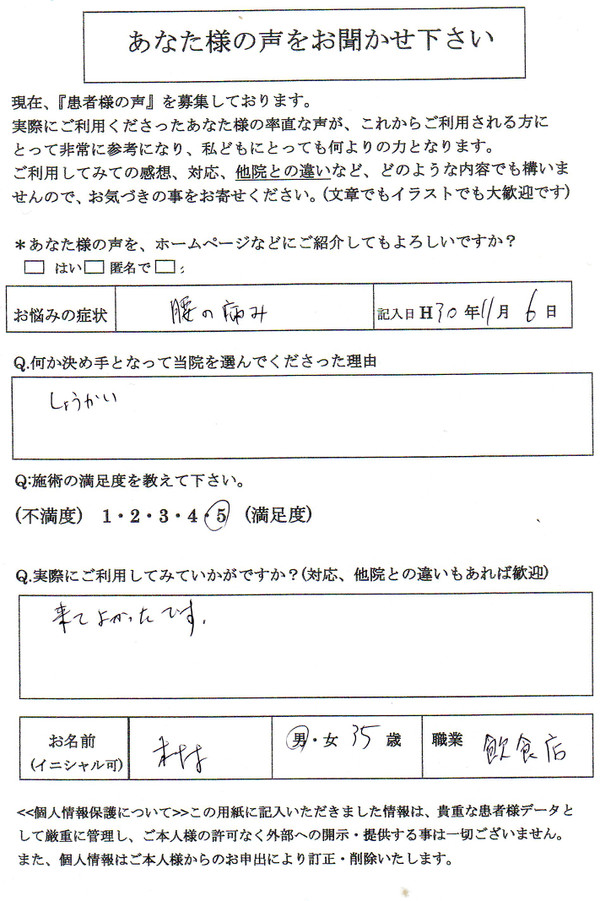 あなた様の声をお聞かせ下さい
現在、『患者様の声』を募集しております。
実際にご利用くださったあなた様の率直な声が、これからご利用される方に
とって非常に参考になり、私どもにとっても何よりの力となります。
ご利用してみての感想、対応、他院との違いなど、どのような内容でも構いま
せんので、お気づきの事をお寄せください。(文章でもイラストでも大歓迎です)
＊あなた様の声を、ホームページなどにご紹介してもよろしいですか？
□ はい □ 匿名で □ ;
お悩みの症状 腰の痛み 記入日 H30年11月6日
Q.何か決め手となって当院を選んでくださった理由
しょうかい
Q:施術の満足度を教えて下さい。
(不満度) 1・2・3・4・5 (満足度)
Q.実際にご利用してみていかがですか？(対応、他院との違いもあれば歓迎)
来てよかったです。
お名前 男・女 35歳 職業 飲食店
(イニシャル可)
<<個人情報保護について>>この用紙に記入いただきました情報は、貴重な患者様データと
して厳重に管理し、ご本人様の許可なく外部への開示・提供する事は一切ございません。
また、個人情報はご本人様からのお申出により訂正・削除いたします。